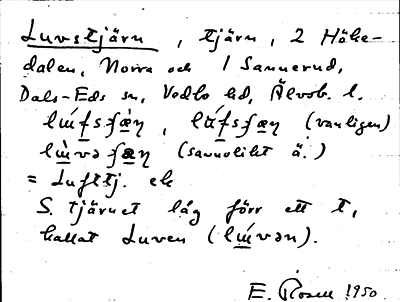 Luvstjärn, tjärn, 2 Höke-
dalen, Norra och 1 Sannerud,
Dals-Eds sn, Vedbo hd, Älvsb. l.
(vanligen)
(sannolikt ä.)
= Lufttj. ek
S. tjärnet låg förr ett t,
kallat Luven (lɯ́vən).
E. Rosell 1950